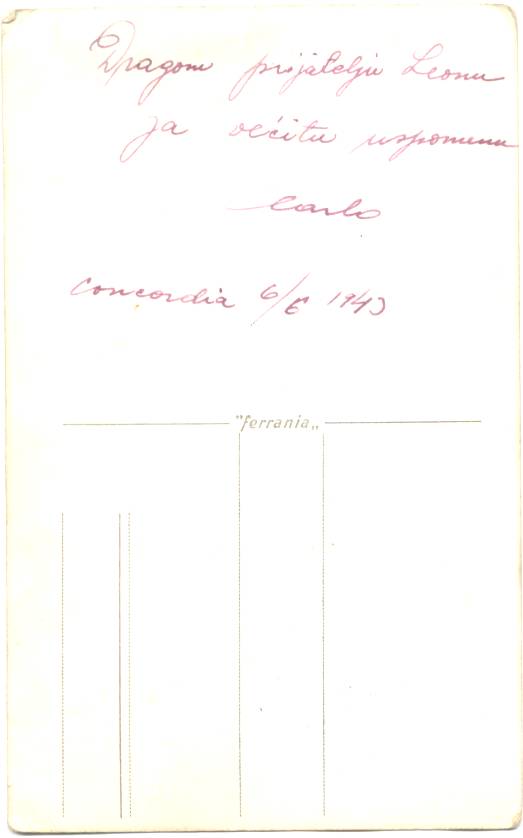 Dragom prijatelju Leonu
za večitu uspomenu
Carlo
Concordia 6/6 1943
"ferrania„